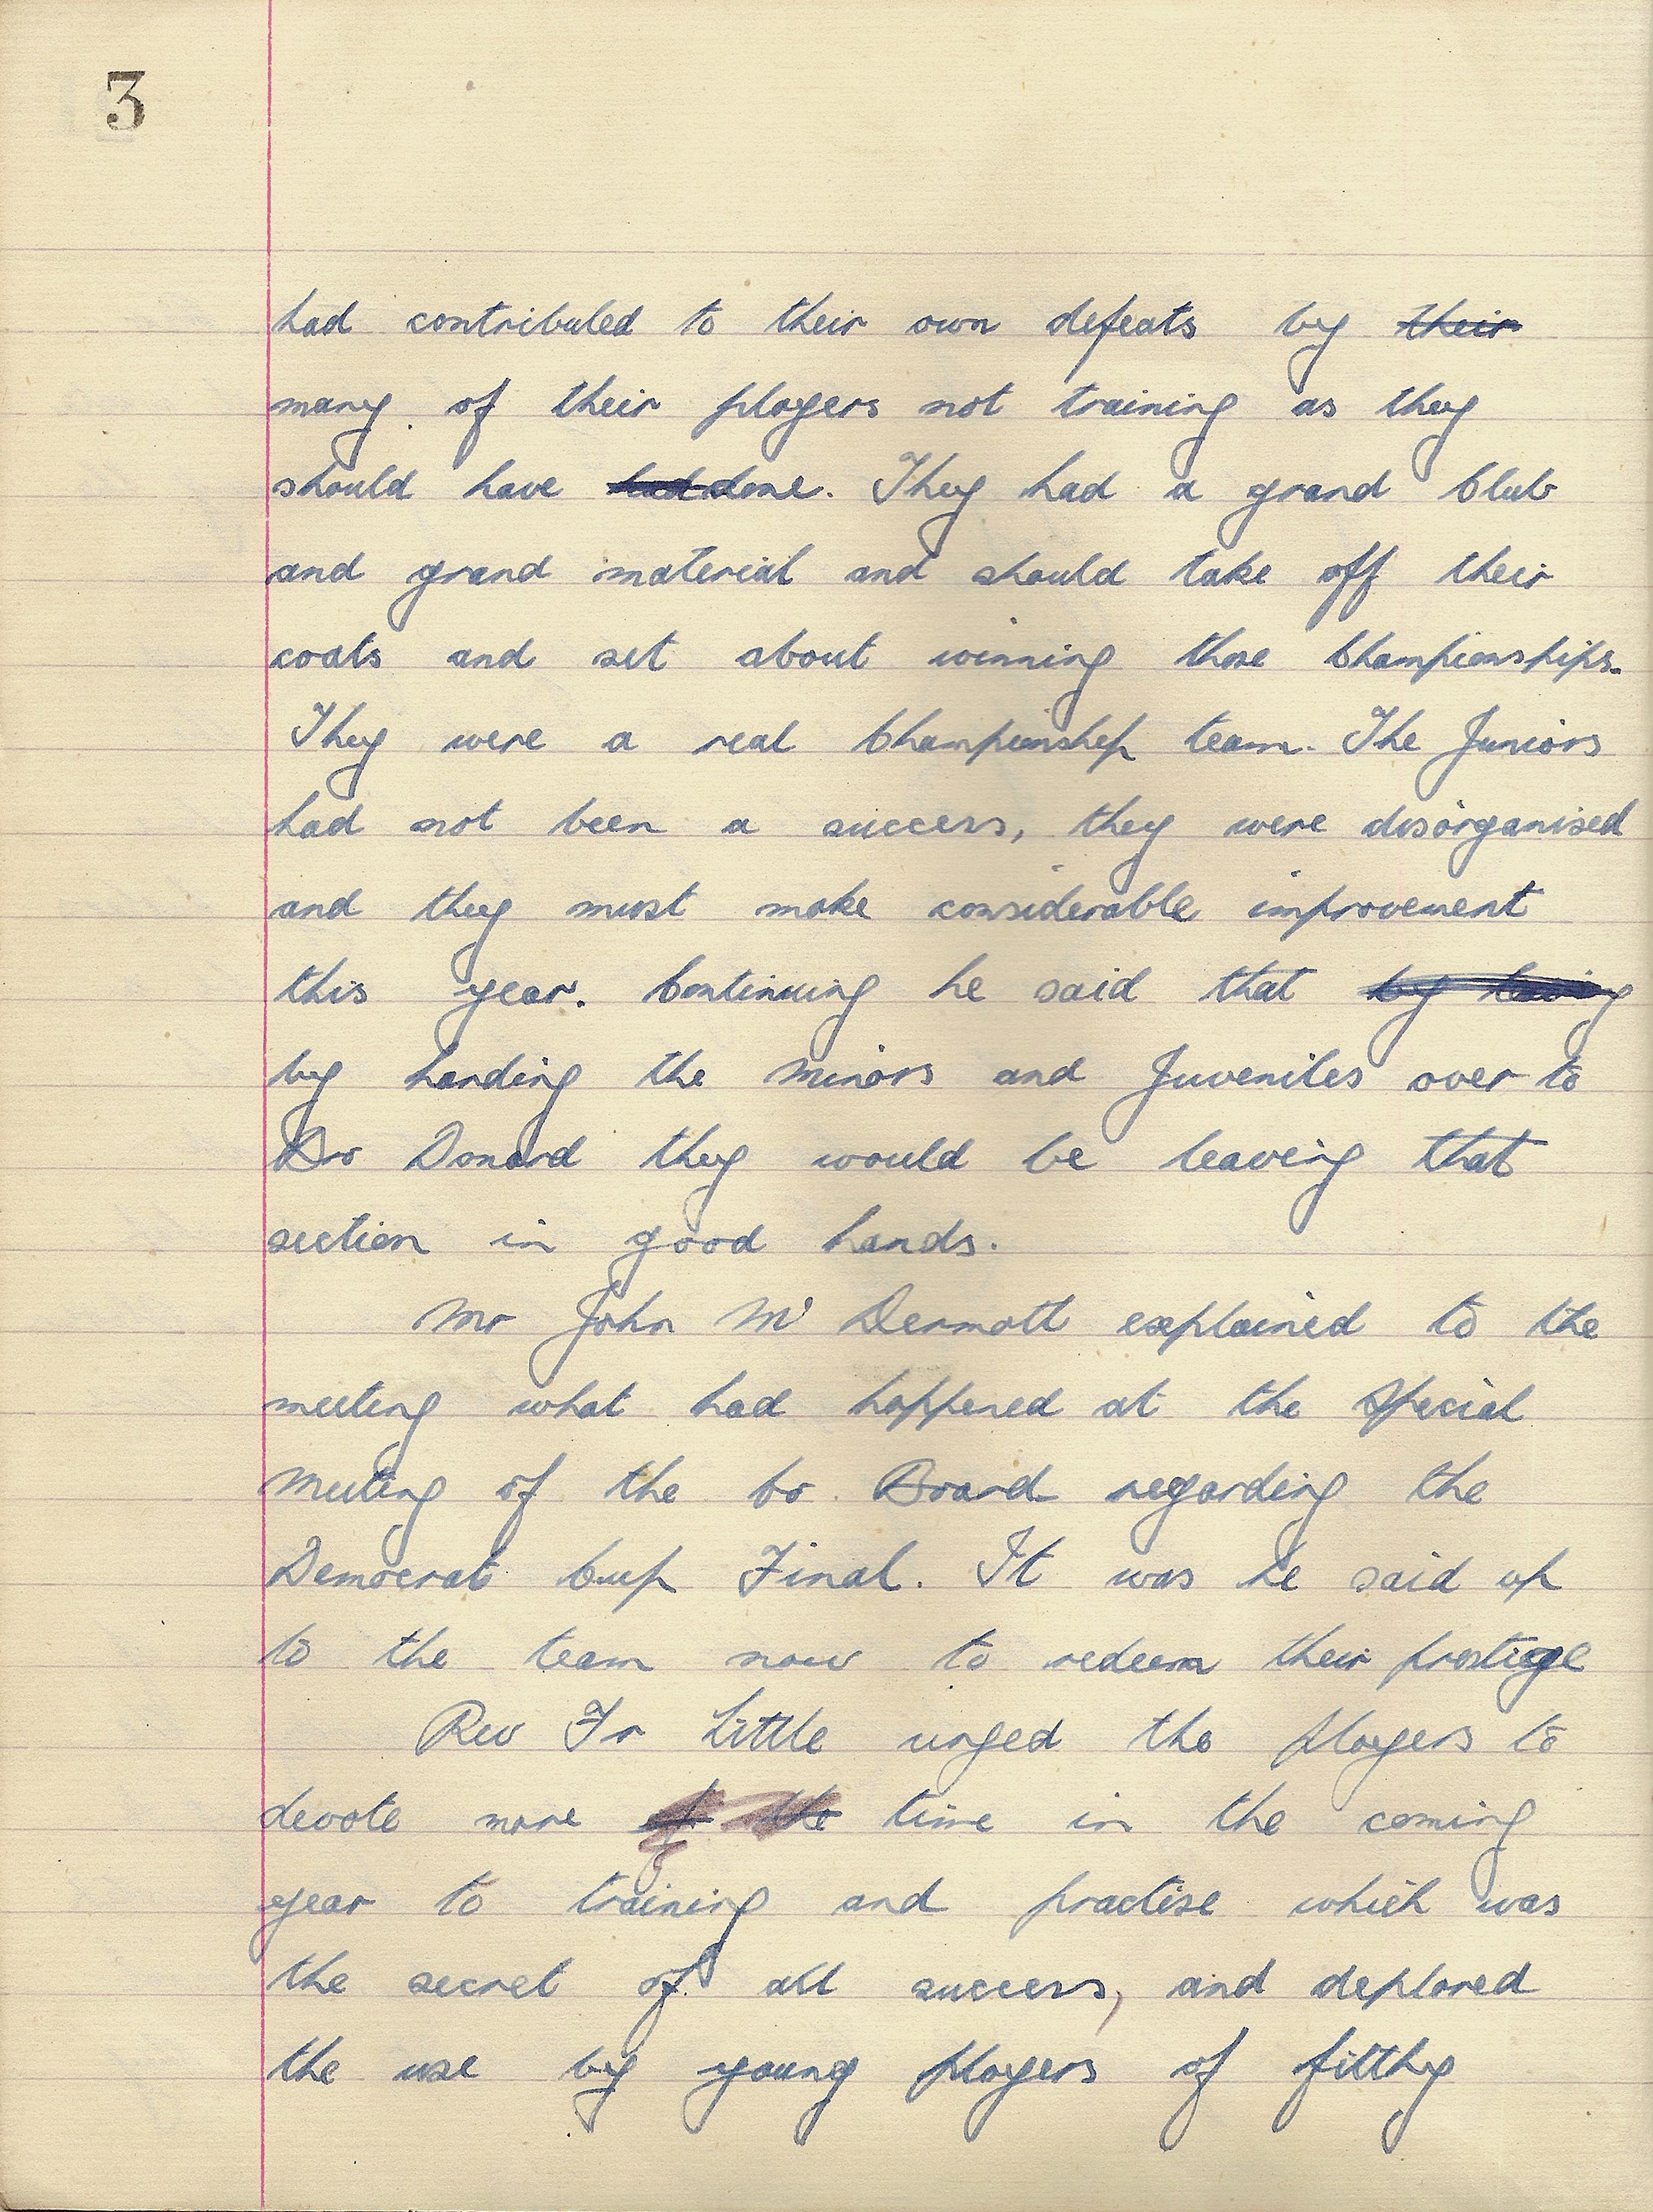 3
had contributed to their own defeats by their
many of their players not training as they
should have had done. They had a grand Club
and grand material and should take off their
coats and set about winning those Championships.
They were a real Championship team. The Juniors
had not been a success, they were disorganised
and they must make considerable improvement
this year. Continuing he said that by leaving
by handing the Minors and Juveniles over to
Dr Donard they would be leaving that
section in good hands.
Mr John Mc Dermott explained to the
meeting what had happened at the Special
Meeting of the Co Board regarding the
Democrat Cup Final. It was he said up
to the team now to redeem their prestige
Rev Fr Little urged the players to
devote more of the time in the coming
year to training and practise which was
the secret of all success, and deplored
the use by young players of filthy